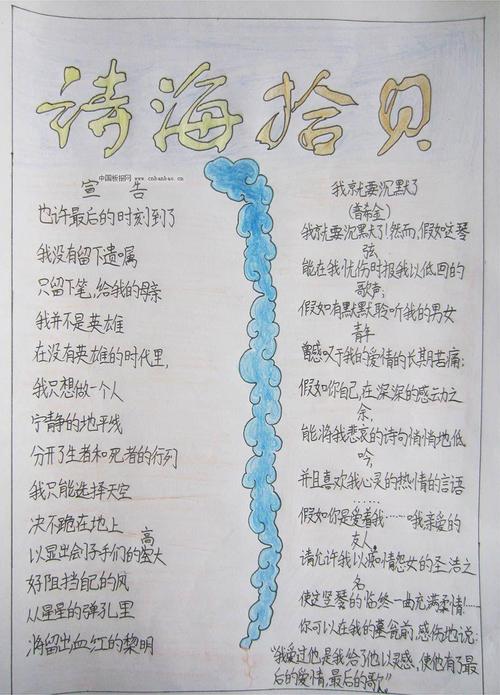 诗海拾贝
中国板报网 www.cnbanbao.cn
宣告
也许最后的时刻到了
我没有留下遗嘱
只留下笔,给我的母亲
我并不是英雄
在没有英雄的时代里,
我只想做一个人
宁静的地平线
分开了生者和死者的行列
我只能选择天空
决不跪在地上
以显出刽子手们的高大
好阻挡自己的风
从星星的弹孔里
将留出血红的黎明
我就要沉默了
(普希金)
我就要沉默了!然而,假如这琴
弦,
能在我忧伤时报我以低回的
歌声;
假如有默默聆听我的男女
青年
曾感叹于我的爱情的长期苦痛;
假如你自己,在深深的感动之
余,
能将我悲哀的诗句悄悄地低
吟,
并且喜欢我心灵的热情的言语
……
假如你是爱着我……哦我亲爱的
友人,
请允许我以痴情怨女的圣洁之
名
使这竖琴的临终一曲充满柔情!……
你可以在我的墓瓮前,感伤地说:
“我爱过他是我给了他以灵感,使他有了最
后的爱情,最后的歌”